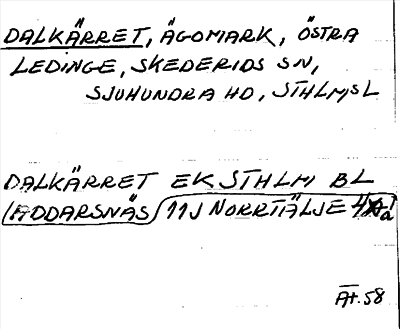 DALKÄRRET, ÄGOMARK, ÖSTRA
LEDINGE, SKEDERIDS SN,
SJUHUNDRA HD, STHLMSL
DALKÄRRET EK STHLM BL
ADDARSNÄS 11J NORRTÄLJE 4
ÄT.58